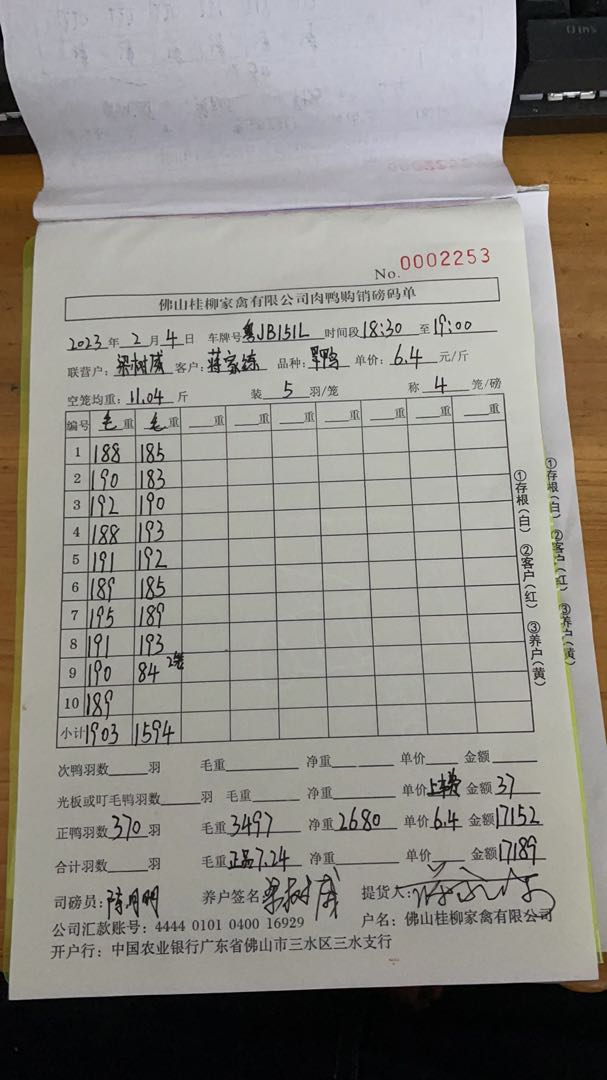 No. 0002253
佛山桂柳家禽有限公司肉鸭购销磅码单
2023年 2月 4日 车牌号粤JB151L 时间段18:30 至19:00
联营户：梁树威 客户：蒋家练 品种： 单价：6.4 元/斤
空笼均重：11.04 斤 装 5 羽/笼 称 4 笼/磅
编号 毛重 毛重 重 重 重 重 重 重
1 188 185
2 190 183
3 192 190
4 188 193
5 191 192
6 189 185
7 195 189
8 191 193
9 190 84 2笼
10 189
小计 1903 1594
①存根（白） ②客户（红） ③养户（黄）
①存根（白） ②客户（红） ③养户（黄）
次鸭羽数 羽 毛重 净重 单价 金额
光板或叮毛鸭羽数 羽 毛重 净重 单价上车费 金额 37
正鸭羽数 370 羽 毛重 3497 净重 2680 单价 6.4 金额 17152
合计羽数 羽 毛重正品7.24 净重 单价 金额 17189
司磅员：陈月明 养户签名 梁树威 提货人：
公司汇款账号：4444 0101 0400 16929 户名：佛山桂柳家禽有限公司
开户行：中国农业银行广东省佛山市三水区三水支行